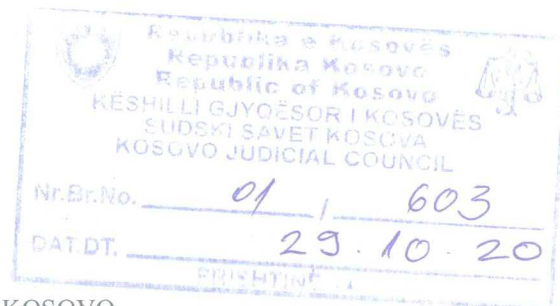 Republika e Kosovës
Republika Kosova
Republic of Kosovo
KËSHILLI GJYQËSOR I KOSOVËS
SUDSKI SAVET KOSOVA
KOSOVO JUDICIAL COUNCIL
Nr.Br.No. 01 / 603
DAT.DT. 29.10.20
PRISHTINË
KOSOVO